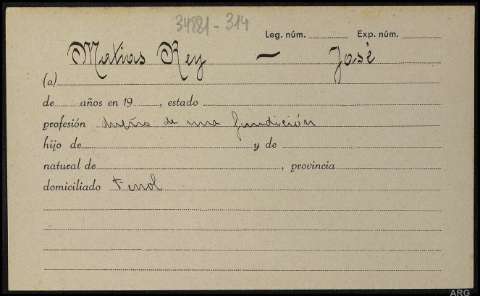 34881-314
Leg. núm. Exp. núm.
Matias Rey — José
(a)
de años en 19 , estado
profesión dueño de una fundición
hijo de y de
natural de , provincia
domiciliado Ferrol
ARG